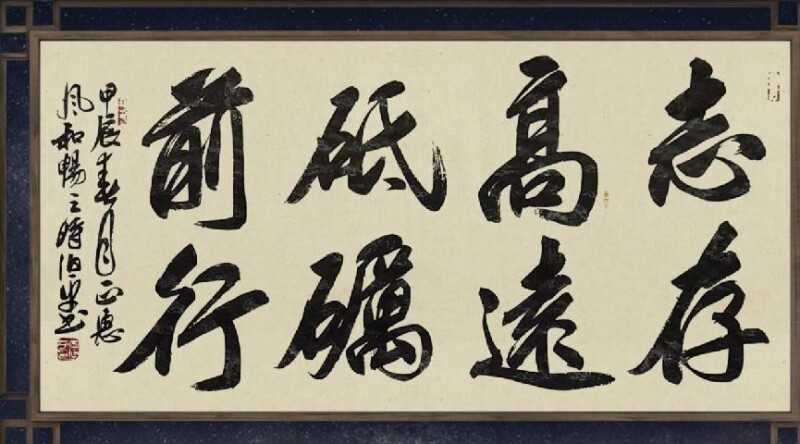 志存
高遠
砥礪
前行
甲辰春月正惠
風和暢之時